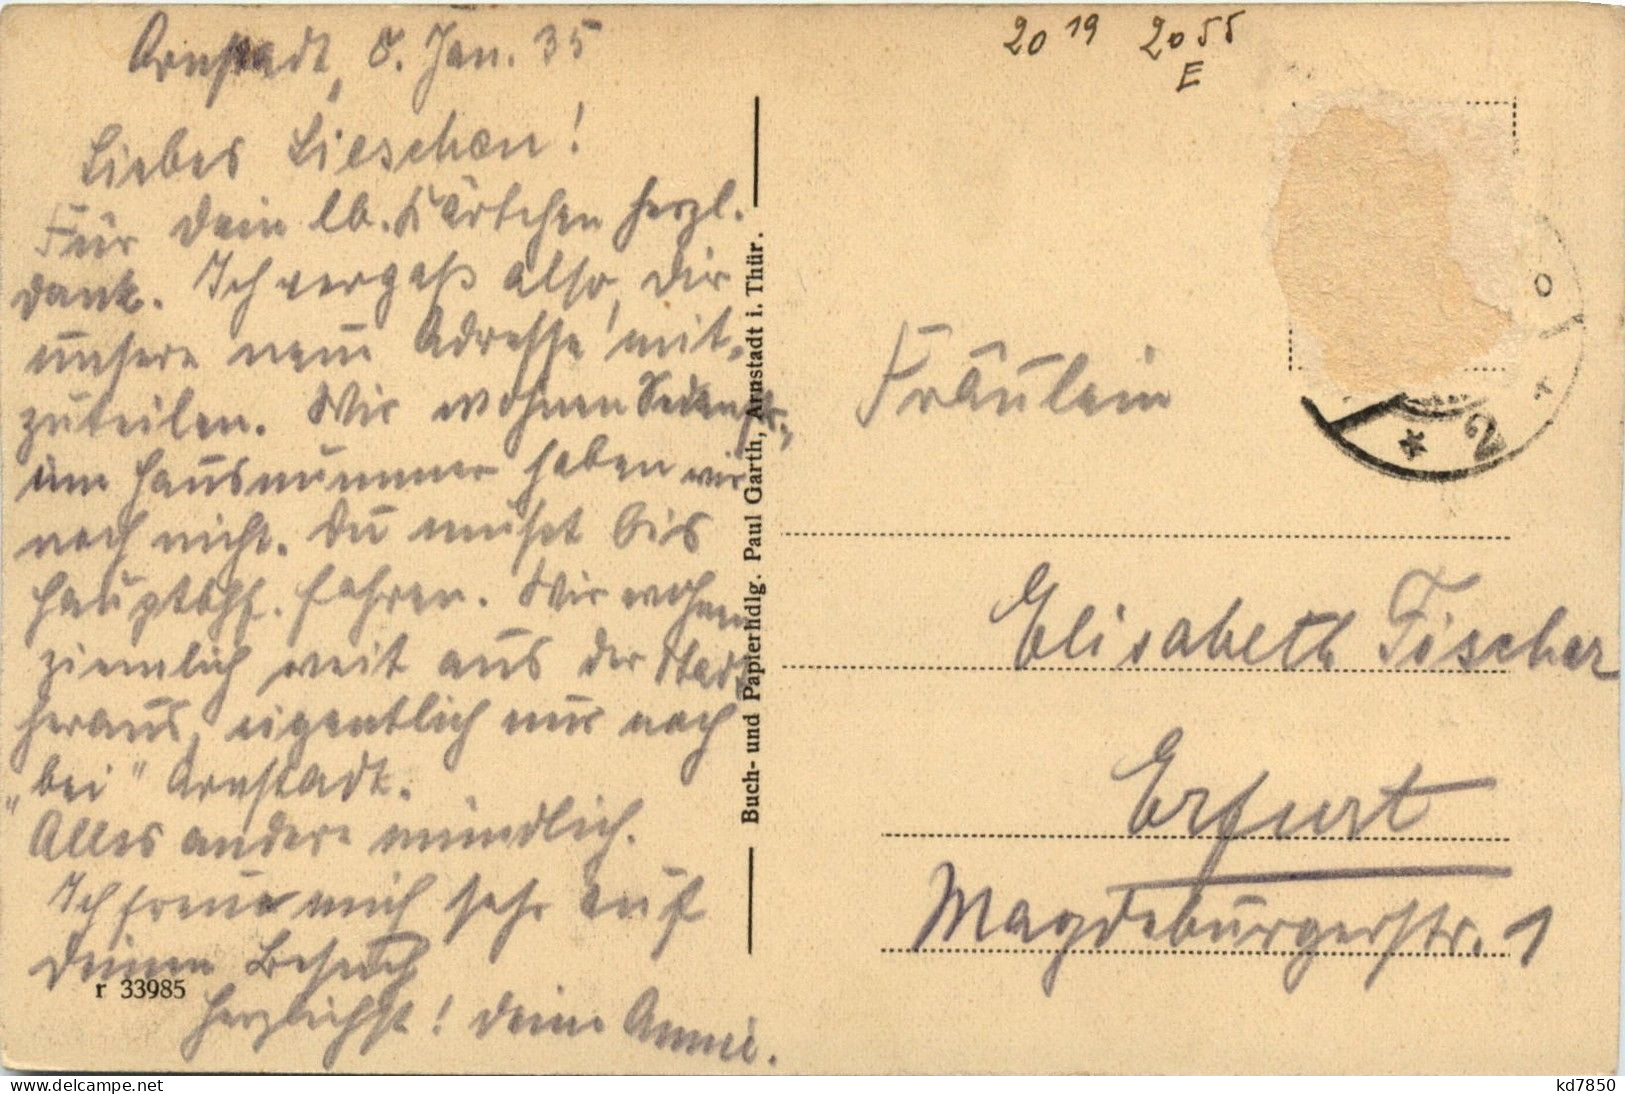 Arnstadt, 8. Jan. 35
Liebes Lieschen!
Für Dein lb. Kärtchen herzl.
Dank. Ich vergaß also, Dir
unsere neue Adresse mit-
zuteilen. Wir wohnen Sedanstr.,
eine Hausnummer haben wir
noch nicht. Du mußt bis
Hauptbhf. fahren. Wir wohnen
ziemlich weit aus der Stadt
heraus, eigentlich nur noch
„bei" Arnstadt.
Alles andere mündlich.
Ich freue mich sehr auf
Deinen Besuch
Herzlichst! Deine Annie.
r 33985
Buch- und Papierhdlg. Paul Garth, Arnstadt i. Thür.
20 19 20 55
E
* 2
Fräulein
Elisabeth Fischer
Erfurt
Magdeburgerstr. 1
kd7850
delcampe.net